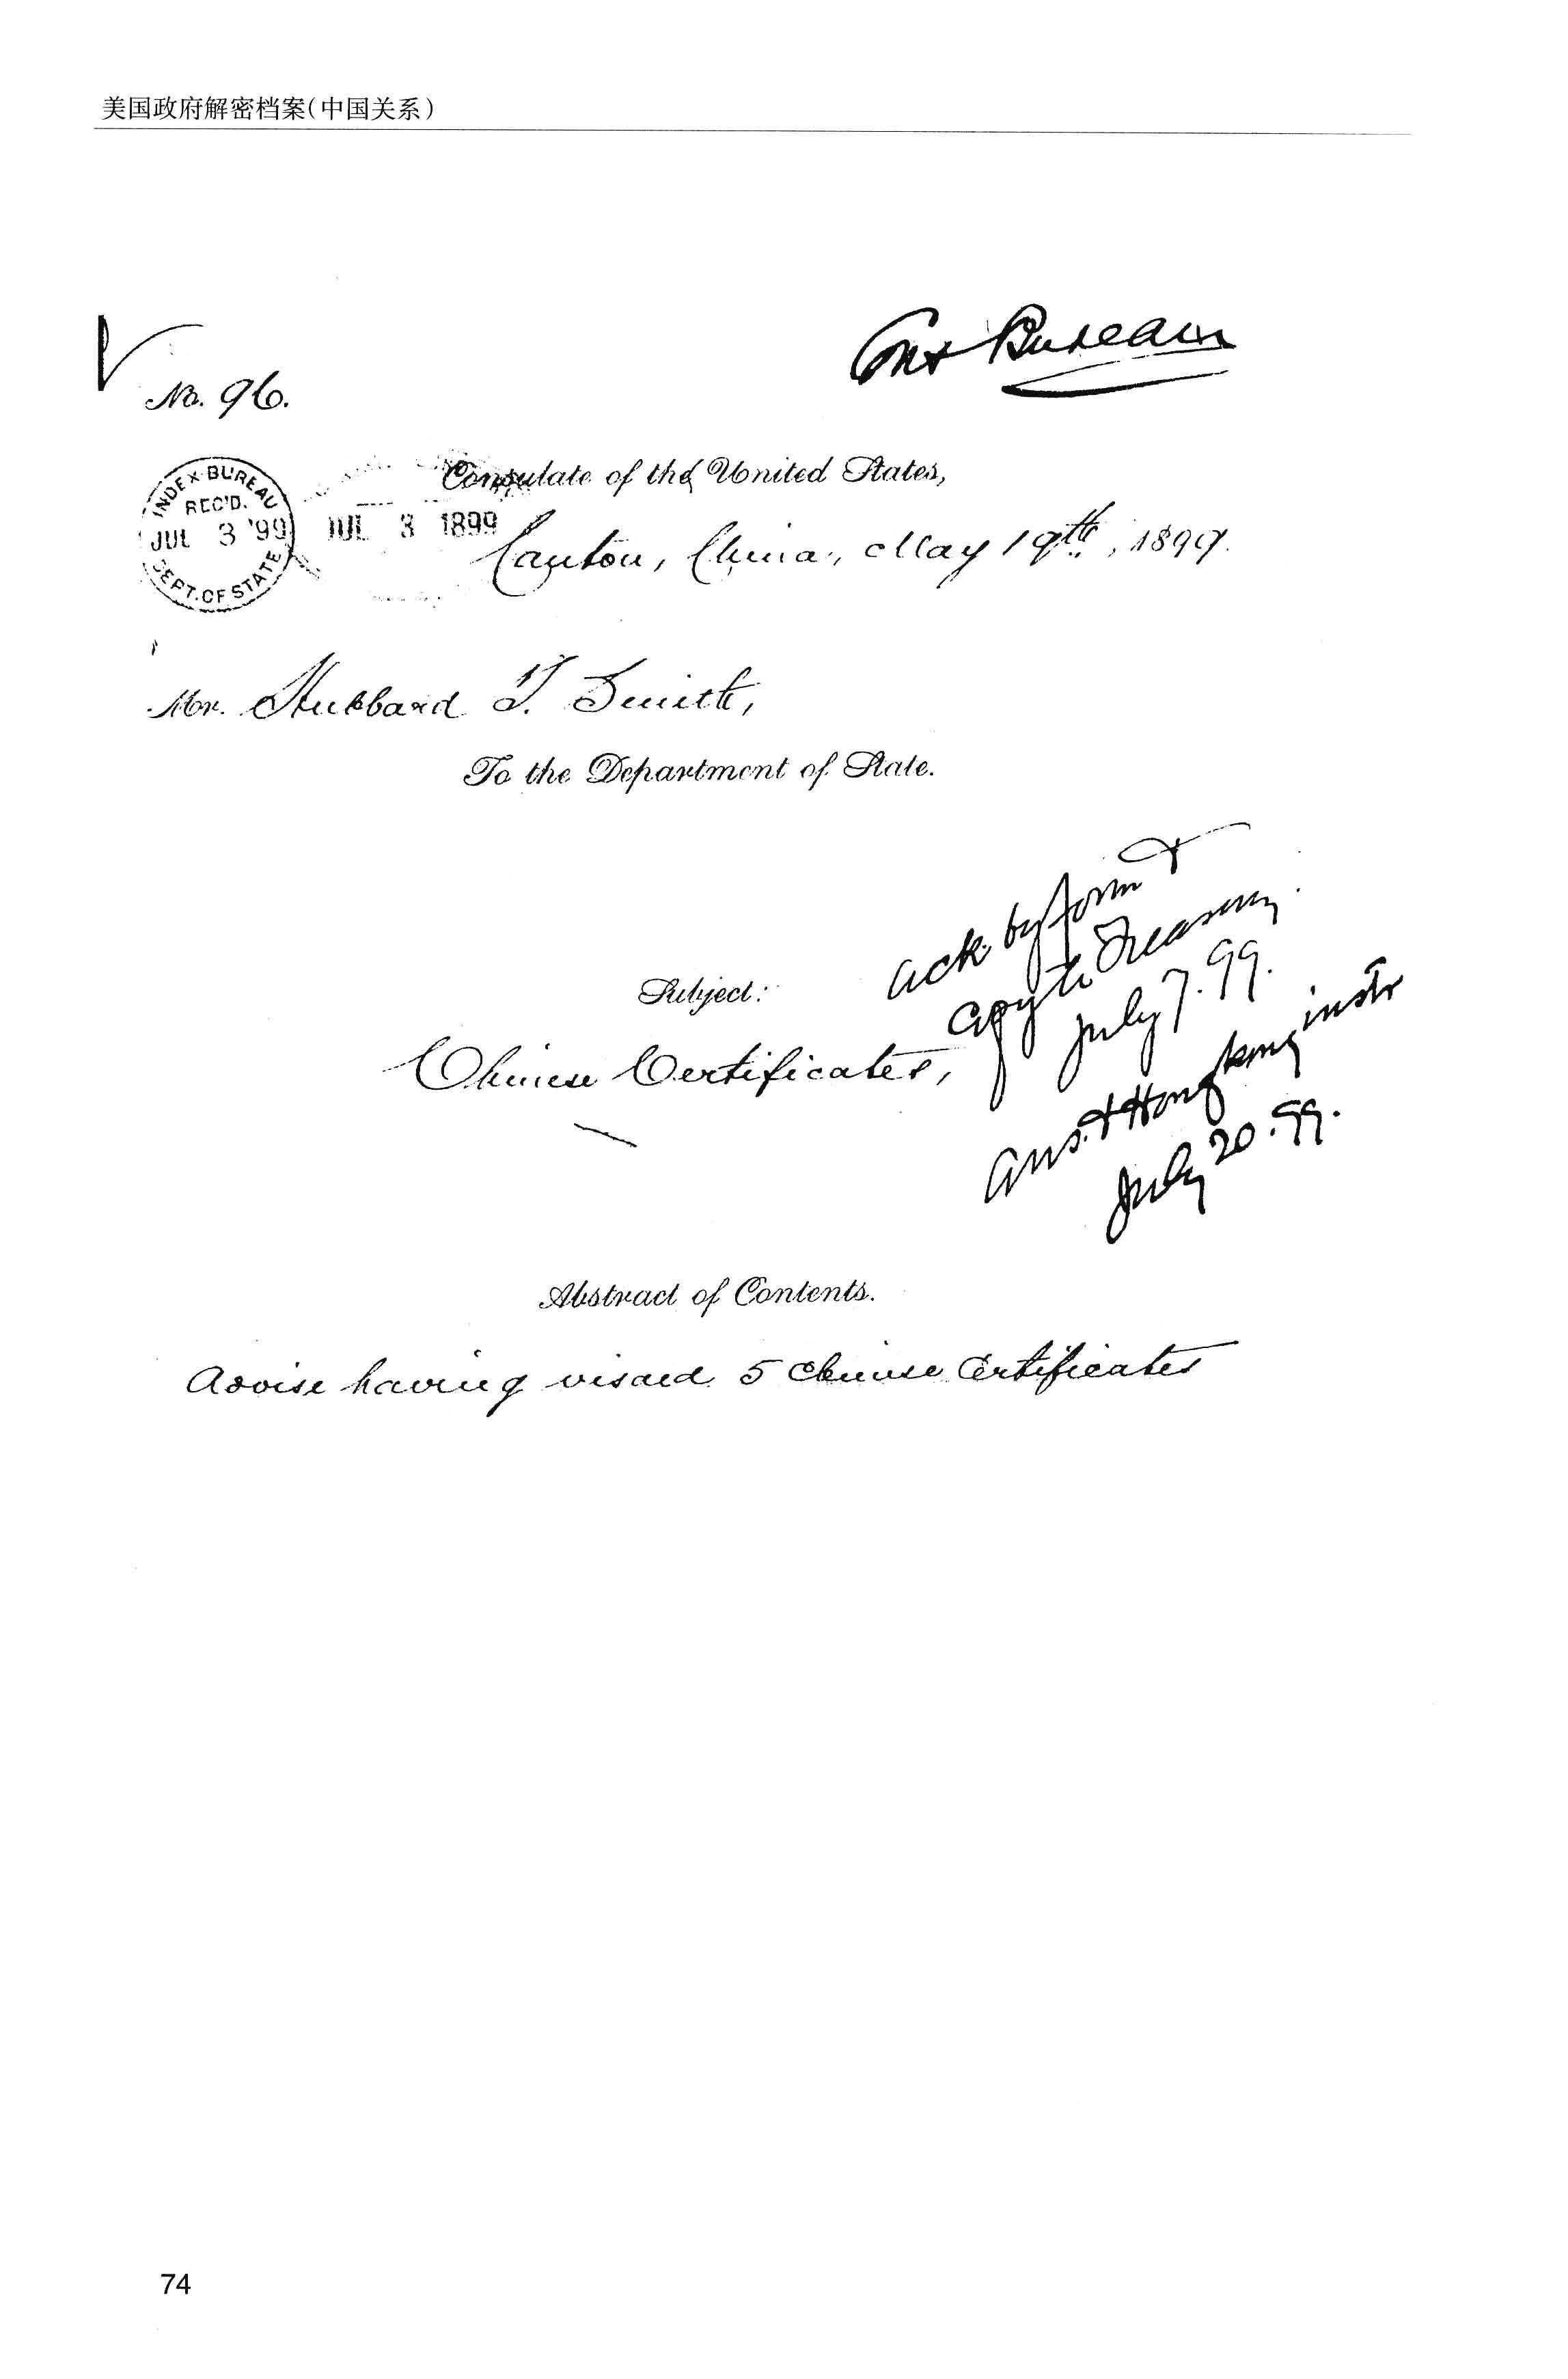 美国政府解密档案(中国关系)
Bureau
No. 96.
INDEX BUREAU
REC'D.
JUL 3 '99
DEPT. OF STATE
JUL 3 1899
Consulate of the United States,
Canton, China, May 19th, 1899.
Mr. Hubbard T. Smith,
To the Department of State.
ack. by form &
copy to Treasury.
July 7. 99.
Subject:
Chinese Certificates,
ans. & Hongkong instr
July 20. 99.
Abstract of Contents.
Advise having visaed 5 Chinese Certificates
74